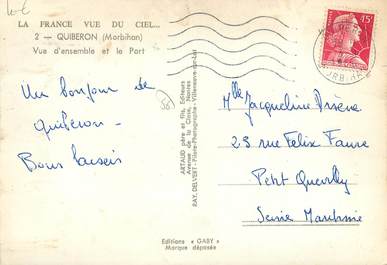 LA FRANCE VUE DU CIEL...
2 — QUIBERON (Morbihan)
Vue d'ensemble et le Port
15F
Un bonjour de
Quiberon -
Bons baisers
ARTAUD père et fils, Éditeurs
Avenue de la Close, Nantes
RAY. DELVERT - Pilote-Photographe - Villeneuve-sur-Lot
Mlle Jacqueline
23 rue Félix Faure
Petit Quevilly
Seine Maritime
Editions « GABY »
Marque déposée